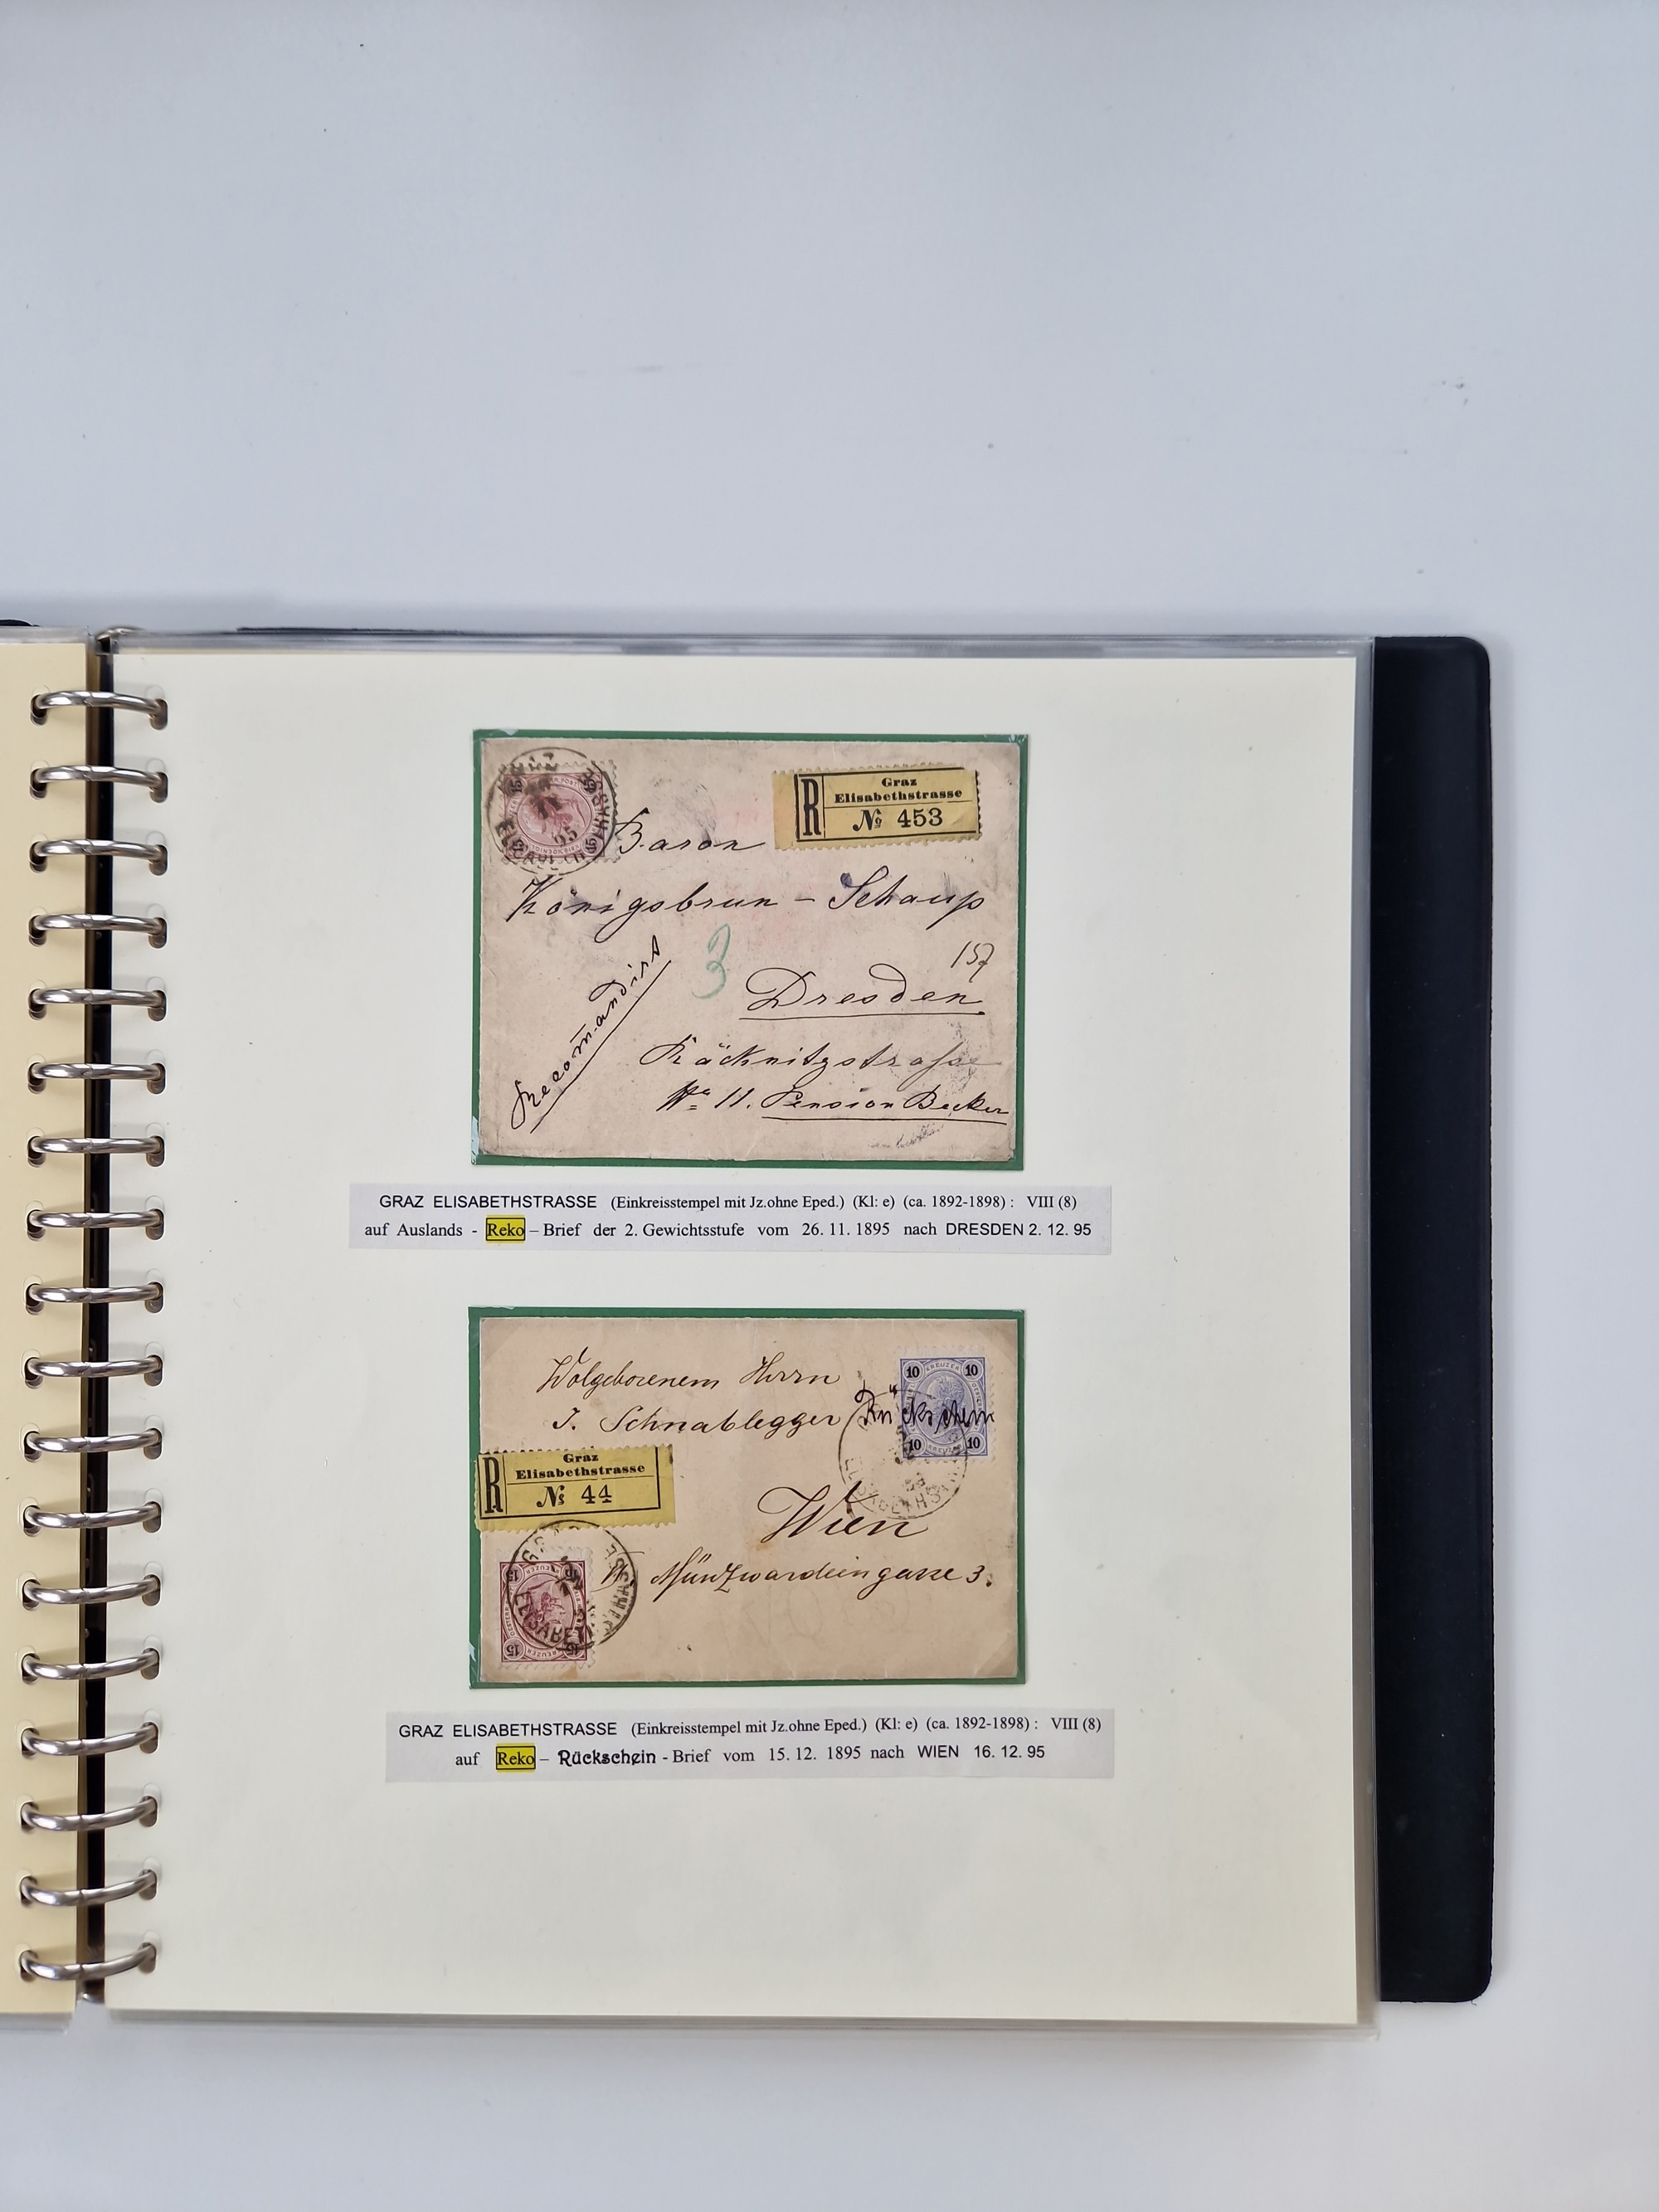 Graz
Elisabethstrasse
R № 453
Baron
Königsbrun - Schaup
3
157
Dresden
Recom̄andirt
Räcknitzstrasse
No 11. Pension Becker
GRAZ ELISABETHSTRASSE (Einkreisstempel mit Jz.ohne Eped.) (Kl: e) (ca. 1892-1898) : VIII (8)
auf Auslands - Reko – Brief der 2. Gewichtsstufe vom 26. 11. 1895 nach DRESDEN 2. 12. 95
Wolgeborenem Herrn
J. Schnablegger
Rückschein
10 KREUZER 10
10 KREUZER 10
Graz
Elisabethstrasse
R № 44
Wien
Münzwardeingasse 3.
15 KREUZER 15
GRAZ ELISABETHSTRASSE (Einkreisstempel mit Jz.ohne Eped.) (Kl: e) (ca. 1892-1898) : VIII (8)
auf Reko – Rückschein - Brief vom 15. 12. 1895 nach WIEN 16. 12. 95